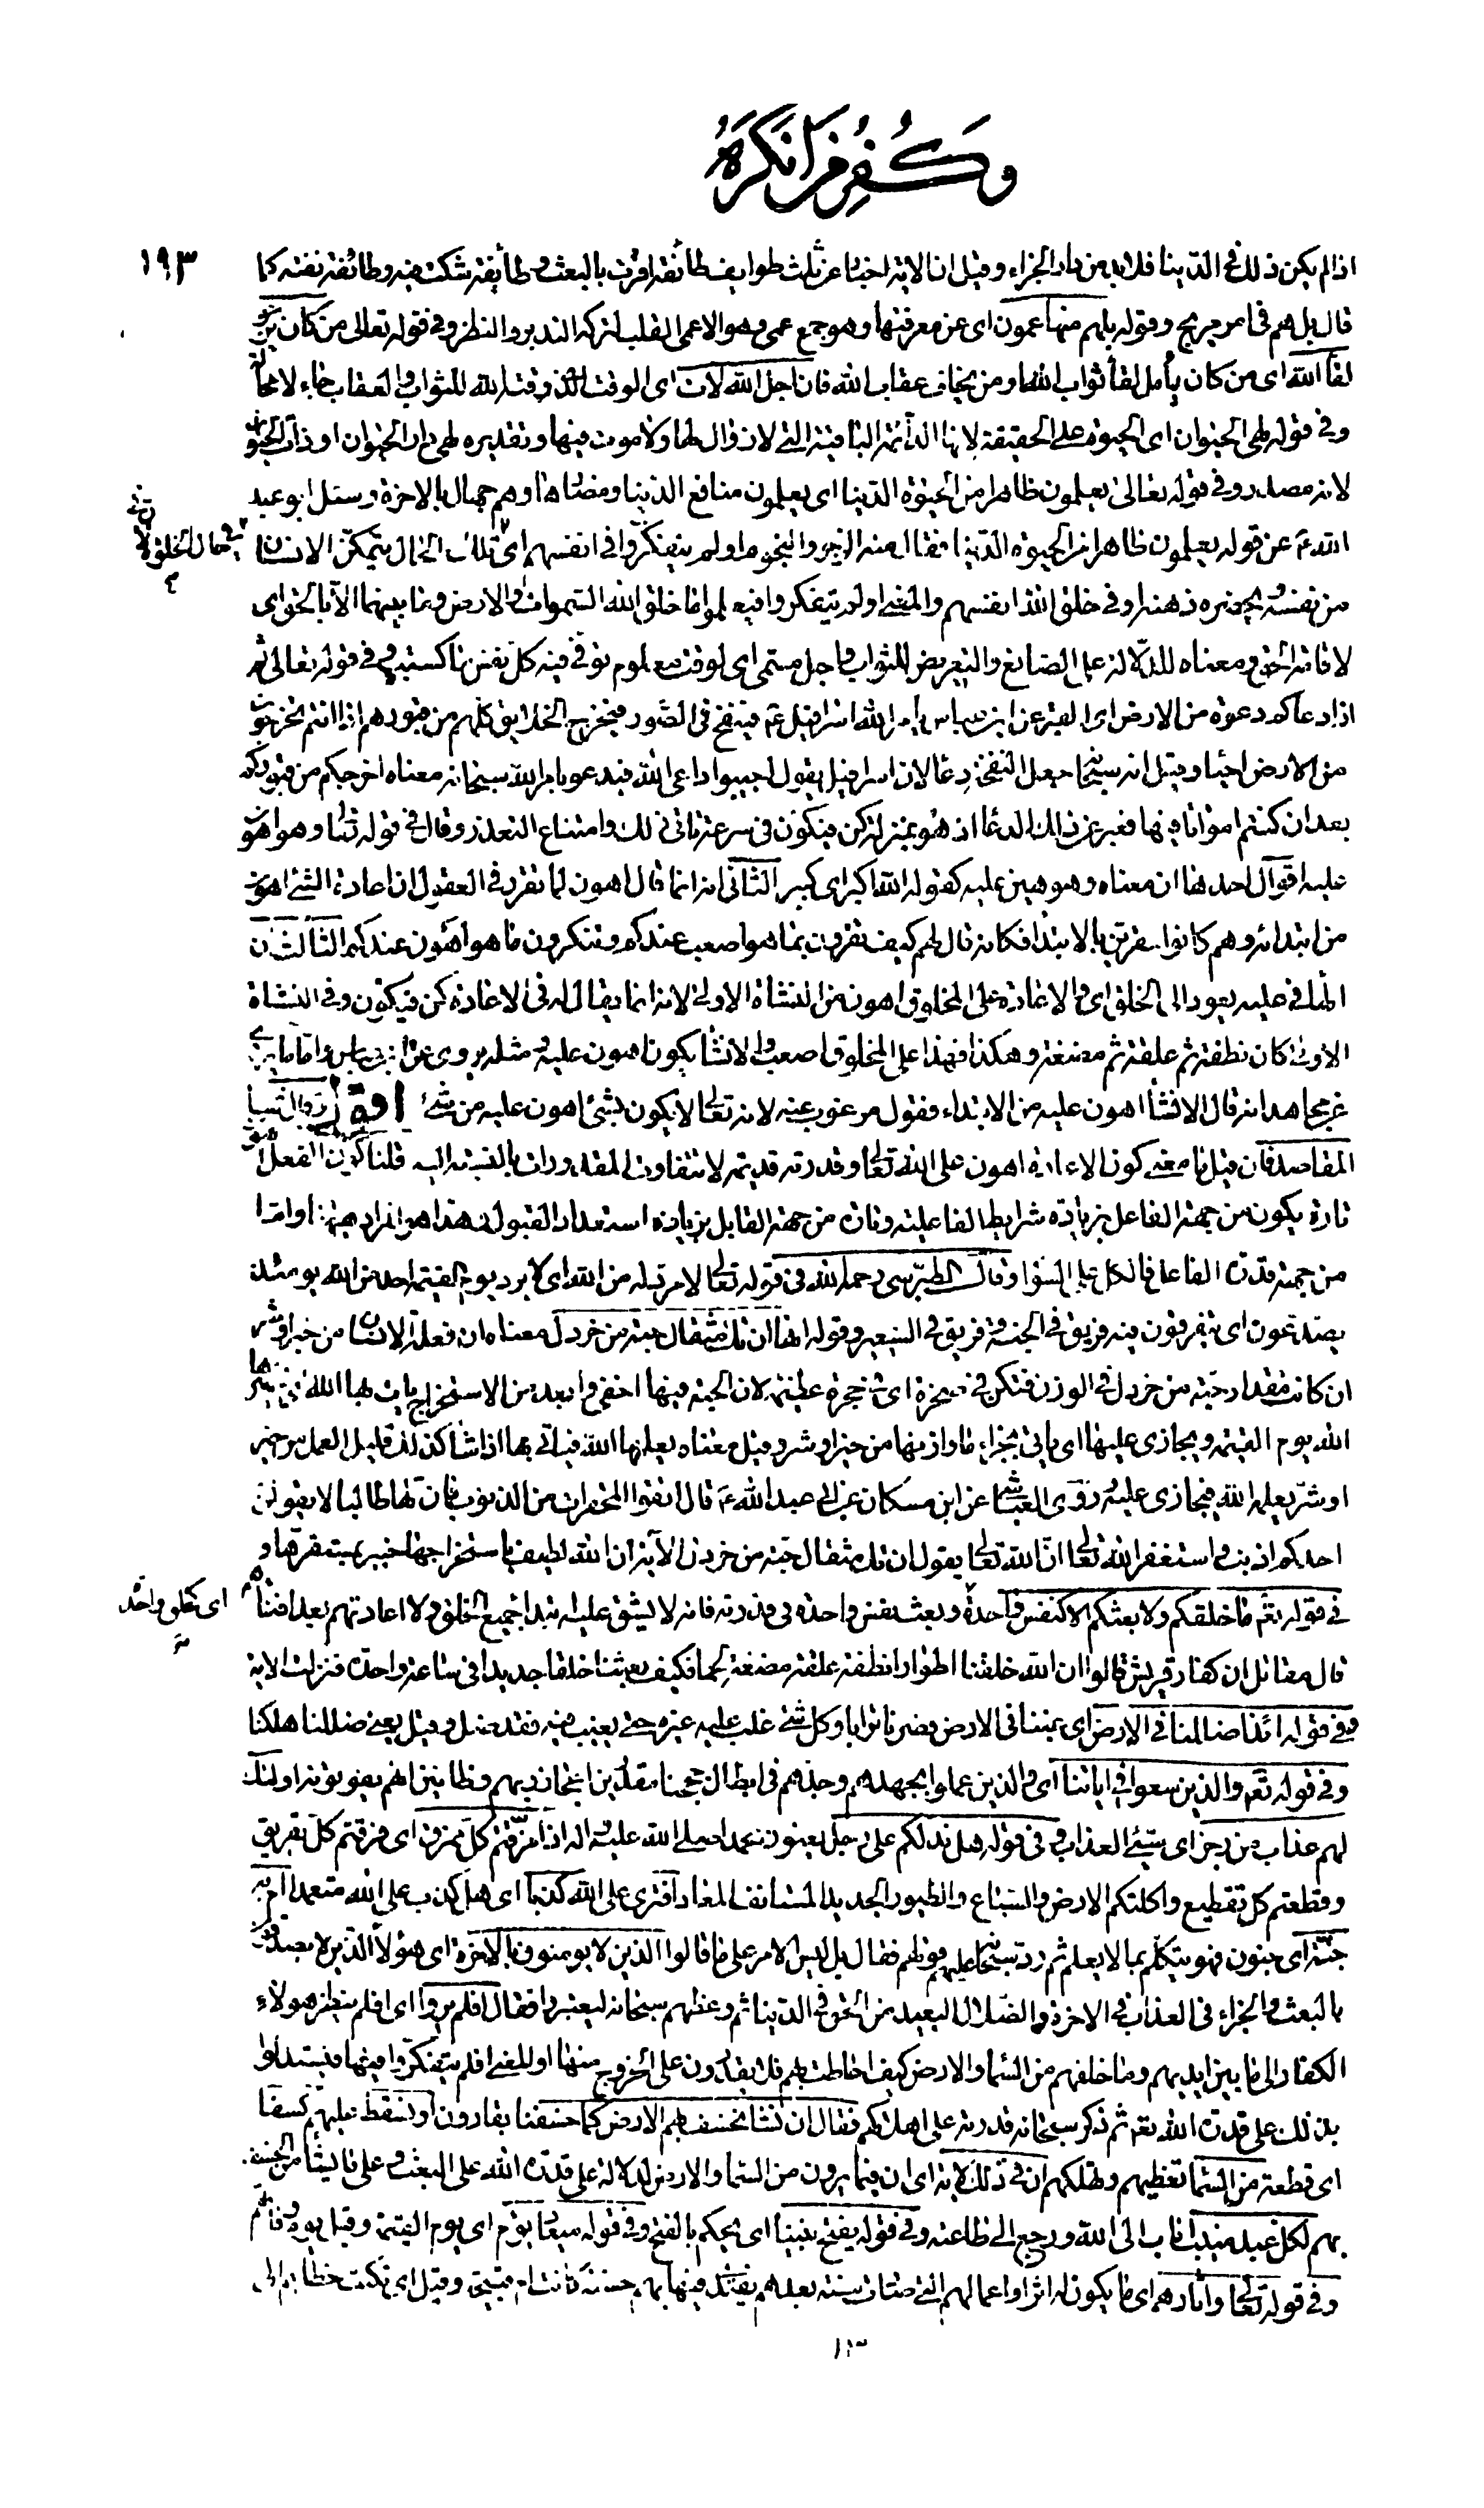 وكفر من انكره
١٩٣
اذا لم يكن ذلك في الدنيا فلا بد من دار الجزاء وقيل ان الاية اخبار عن ثلث طوايف طائفة اقرت بالبعث وطائفة شكت فيه وطائفة نفته كما
قال بل هم في امر مريج وقوله بل هم منها عمون اى عن معرفتها وهو جمع عمى وهو الاعمى القلب لتركه التدبر والنظر وفي قوله تعالى من كان يرجو
لقاء الله اى من كان يأمل لقاء ثواب الله او من يخاف عقاب الله فان اجل الله لات اى الوقت الذى وقته الله للثواب والعقاب جاء لا محالة
وفي قوله لهى الحيوان اى الحيوة على الحقيقة لانها الدائمة الباقية التي لا زوال لها ولا موت فيها وتقديره لهى دار الحيوان او ذات الحيوان
لانه مصدر وفي قوله تعالى يعلمون ظاهرا من الحيوة الدنيا اى يعلمون منافع الدنيا ومضارها وهم جهال بالاخرة وسئل ابو عبد
الله ع عن قوله يعلمون ظاهرا من الحيوة الدنيا فقال منه الزجر والنجوم اولم يتفكروا في انفسهم اى في تلك الحال يتمكن الانسان
في حال الخلوة لان
من نفسه ويحضره ذهنه او في خلق الله انفسهم والمعنى اولم يتفكروا فيعلموا ما خلق الله السموات والارض وما بينهما الا بالحق اى
لاقامة الحق ومعناه للدلالة على الصانع والتعريض للثواب واجل مسمى اى لوقت معلوم توفى فيه كل نفس ما كسبت وفي قوله تعالى ثم
اذا دعاكم دعوة من الارض اى القبر عن ابن عباس يامر الله اسرافيل ع فينفخ في الصور فيخرج الخلايق كلهم من قبورهم اذا انتم تخرجون
من الارض احياء وقيل انه سبحانه جعل النفخة دعاء لان اسرافيل يقول اجيبوا داعى الله فيدعو بامر الله سبحانه معناه اخرجكم من قبوركم
بعد ان كنتم امواتا فيها فعبر عن ذلك بالدعاء اذ هو بمنزلة كن فيكون في سرعة تاتى ذلك وامتناع التعذر وقال في قوله تعالى وهو اهون
عليه اقوال احدها ان معناه وهو هين عليه كقوله الله اكبر اى كبير الثانى انه انما قال اهون لما تقرر في العقول ان اعادة الشئ اهون
من ابتدائه وهم كانوا مقرين بالابتداء فكانه قال لهم كيف تقرون بما هو اصعب عندكم وتنكرون ما هو اهون عندكم الثالث ان
الهاء في عليه يعود الى الخلق اى والاعادة على المخلوق اهون من النشاة الاولى لانه انما يقال له في الاعادة كن فيكون وفي النشاة
الاولى كان نطفة ثم علقة ثم مضغة وهكذا فهذا على المخلوق اصعب والانشاء يكون اهون عليه ومثله يروى عن ابن عباس واما ما يروى
عن مجاهد انه قال الانشاء اهون عليه من الابتداء فقول مرغوب عنه لانه تعالى لا يكون شئ اهون عليه من شئ اقول وقال في
المقاصد فان قيل ما معنى كون الاعادة اهون على الله تعالى وقدرته قديمة لا تتفاوت المقدورات بالنسبة اليه قلنا كون الفعل اهون
تارة يكون من جهة الفاعل بزيادة شرايط الفاعلية وتارة من جهة القابل بزيادة استعداد القبول وهذا هو المراد هيهنا واما
من جهة قدرة الفاعل فالكل على السواء وقال الطبرسى رحمه الله في قوله تعالى لا مرد له من الله اى لا يرد يوم القيمة احد من الله يومئذ
يصدعون اى يتفرقون فيه فريق في الجنة وفريق في السعير وقوله انها ان تك مثقال حبة من خردل معناه ان فعلة الانسان من خير او شر
ان كانت مقدار حبة من خردل في الوزن فتكن في صخرة اى في حجرة عظيمة لان الحبة فيها اخفى وابعد من الاستخراج يات بها الله اى يحضرها
الله يوم القيمة ويجازى عليها اى ياتى بجزاء ما وازنها من خير او شر وقيل معناه يعلمها الله فياتى بها اذا شاء كذلك قليل العمل من خير
او شر يعلمه الله فيجازى عليه وروى العياشى عن ابن مسكان عن ابى عبد الله ع قال اتقوا المحقرات من الذنوب فان لها طالبا لا يقولن
احدكم اذنب واستغفر الله تعالى ان الله تعالى يقول ان تك مثقال حبة من خردل الآية ان الله لطيف باستخراجها خبير بمستقرها و
في قوله تعم ما خلقكم ولا بعثكم الا كنفس واحدة وبعث نفس واحدة في قدرته فانه لا يشق عليه ابتداء جميع الخلق ولا اعادتهم بعد افنائهم
اى كخلق واحد
قال مقاتل ان كفار قريش قالوا ان الله خلقنا اطوارا نطفة علقة مضغة لحما فكيف يبعثنا خلقا جديدا في ساعة واحدة فنزلت الاية
وفي قوله ائذا ضللنا في الارض اى غبنا في الارض وصرنا ترابا وكل شئ غلب عليه غيره حتى يغيب فيه فقد ضل وقيل يعنى ضللنا هلكنا
وفي قوله تعم والذين سعوا في اياتنا اى والذين عملوا بجهدهم وجدهم في ابطال حججنا مقدرين اعجاز ربهم وظانين انهم يفوتونه اولئك
لهم عذاب من رجز اى سيئ العذاب وفي قوله هل ندلكم على رجل يعنون محمدا صلى الله عليه واله اذا مزقتم كل ممزق اى فرقتم كل تفريق
وقطعتم كل تقطيع واكلتكم الارض والسباع والطيور الجديد المستانف المعاد افترى على الله كذبا اى هل كذب على الله متعمدا ام به
جنة اى جنون فهو يتكلم بما لا يعلم ثم رد سبحانه عليهم قولهم فقال بل ليس الامر على ما قالوا الذين لا يومنون بالاخرة اى هؤلاء الذين لا يصدقون
بالبعث والجزاء في العذاب في الاخرة والضلال البعيد من الحق في الدنيا ثم وعظهم سبحانه ليعتبروا فقال افلم يروا اى افلم ينظر هولاء
الكفار الى ما بين ايديهم وما خلفهم من السماء والارض كيف احاطت بهم فلا يقدرون على الخروج منها او المعنى افلم يتفكروا فيها فيستدلوا
بذلك على قدرة الله تعم ثم ذكر سبحانه قدرته على اهلاكهم فقال ان نشا نخسف بهم الارض كما خسفنا بقارون او نسقط عليهم كسفا
اى قطعة من السماء تغطيهم وتهلكهم ان في ذلك لاية اى ان فيما يرون من السماء والارض لدلالة على قدرة الله على البعث وعلى ما يشاء من الخسف
بهم لكل عبد منيب اناب الى الله ورجع الى طاعته وفي قوله يفتح بيننا اى يحكم بالفتح وفي قوله ميعاد يوم اى يوم القيمة وقيل يوم وفاتهم
وفي قوله تعالى واثارهم اى ما يكون له اثر او اعمالهم التى صارت سنة بعدهم يقتدى فيها بهم حسنة كانت ام قبيحة وقيل اى نكتب خطاهم الى
١٩٣